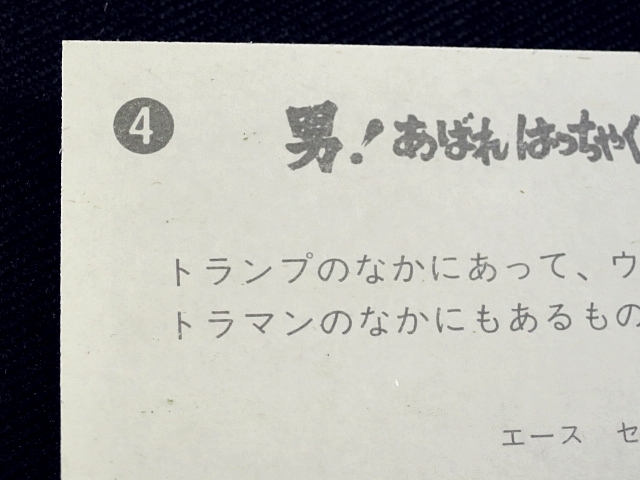 4
男!あばれはっちゃく
トランプのなかにあって、ウ
トラマンのなかにもあるもの
エース セ